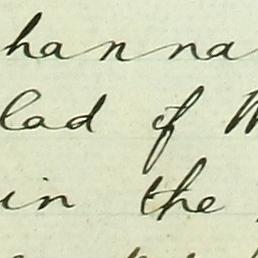 hanna
lad of W
in the